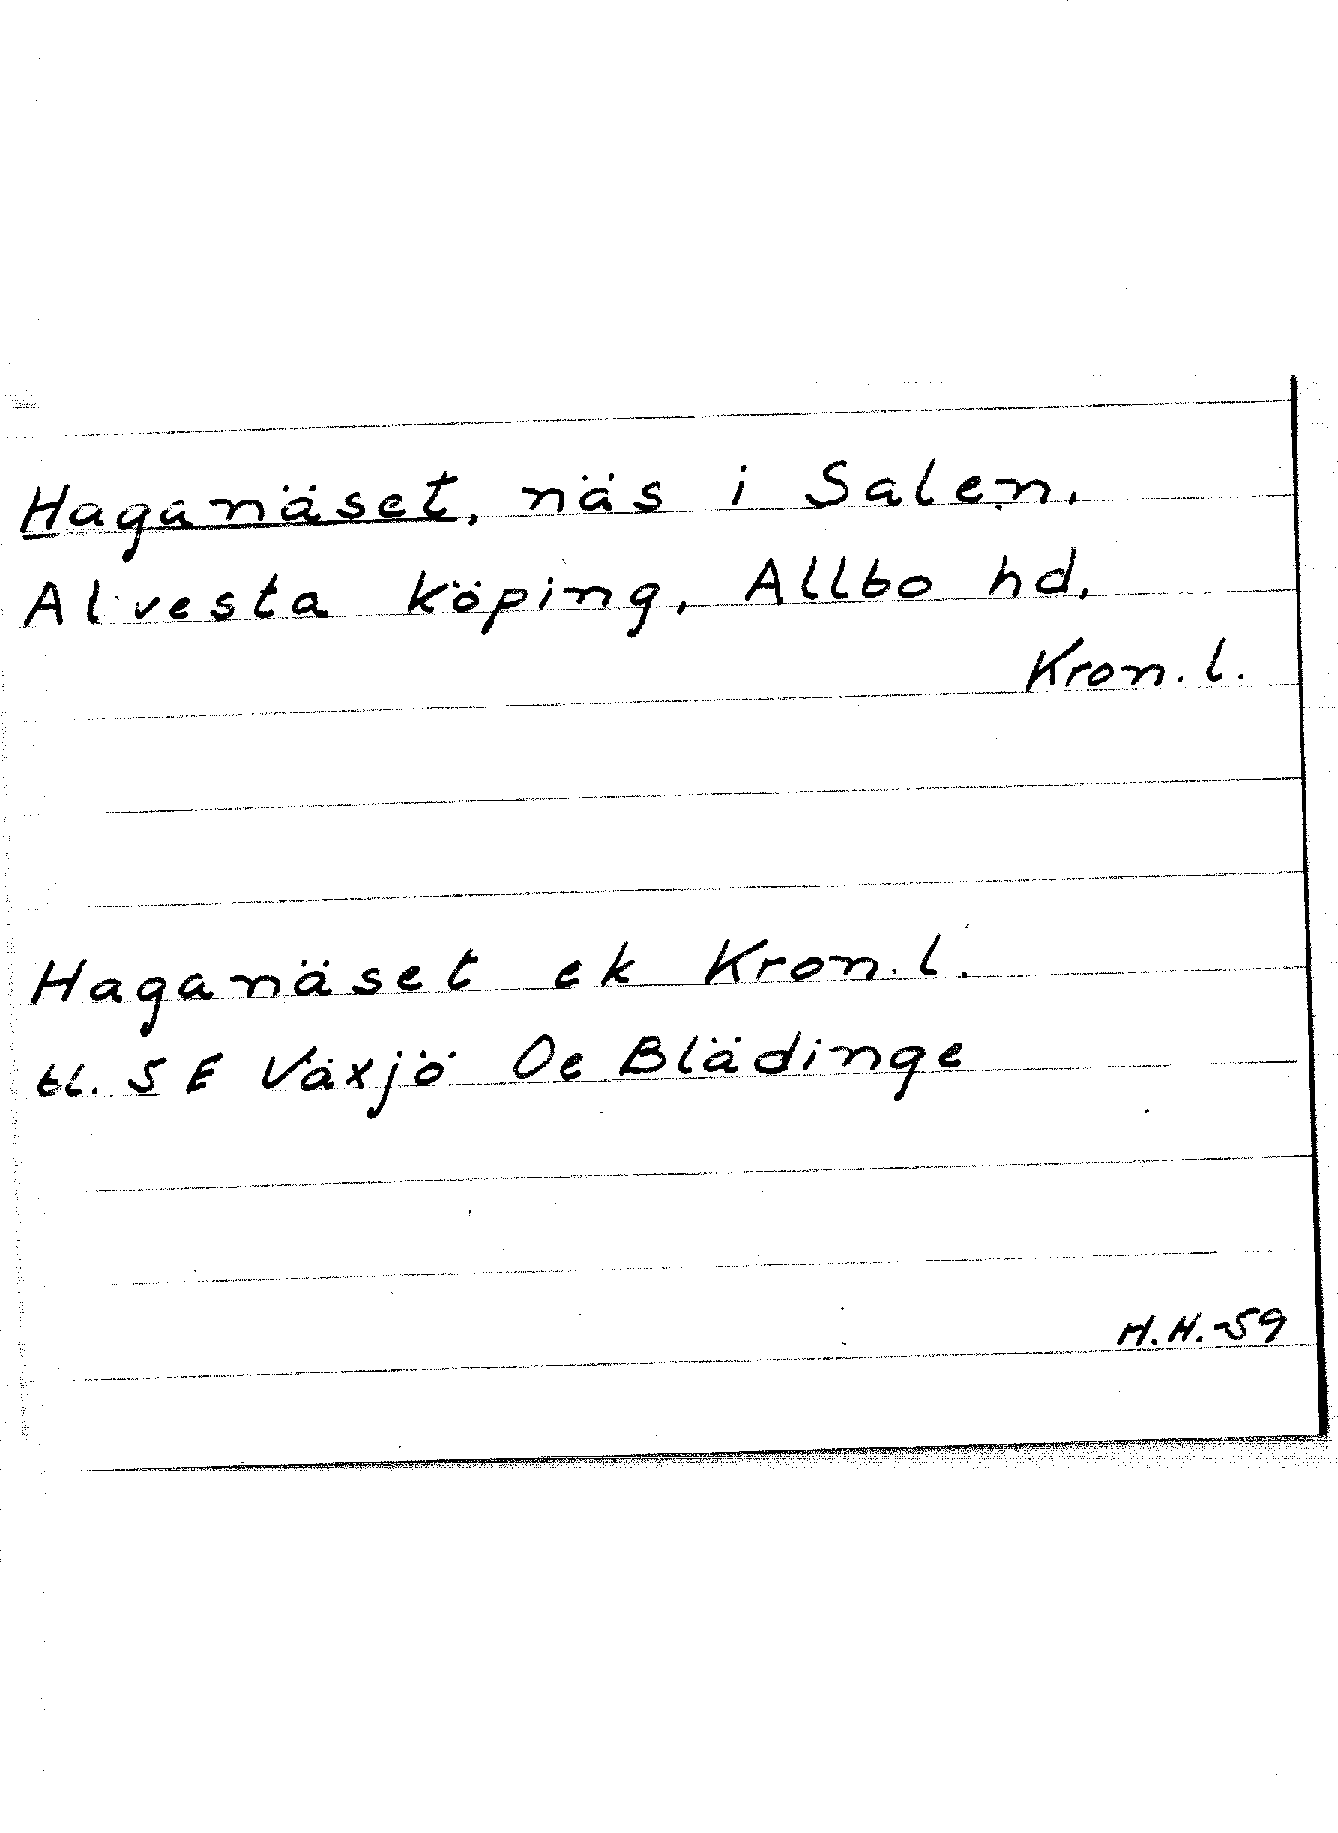 Haganäset, näs i Salen,
Alvesta köping, Allbo hd,
Kron. l.
Haganäset ek Kron. l.
tl. 5 E Växjö Oe Blädinge
H.H.-59